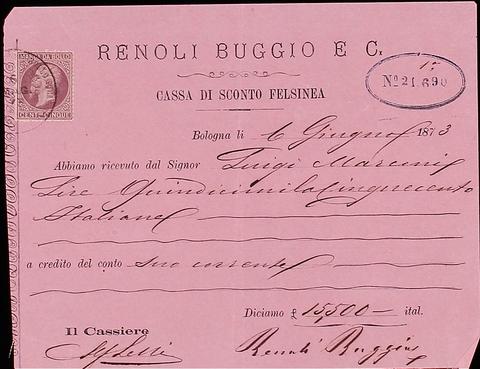 MARCA DA BOLLO
CENT. CINQUE
RENOLI BUGGIO E C.
CASSA DI SCONTO FELSINEA
No. 21690
Bologna li 6 Giugno 1873
Abbiamo ricevuto dal Signor Luigi Marconi
Lire Quindicimilacinquecento
Italiane
a credito del conto suo corrente
Diciamo £ 15,500 — ital.
Il Cassiere
Renoli Buggio